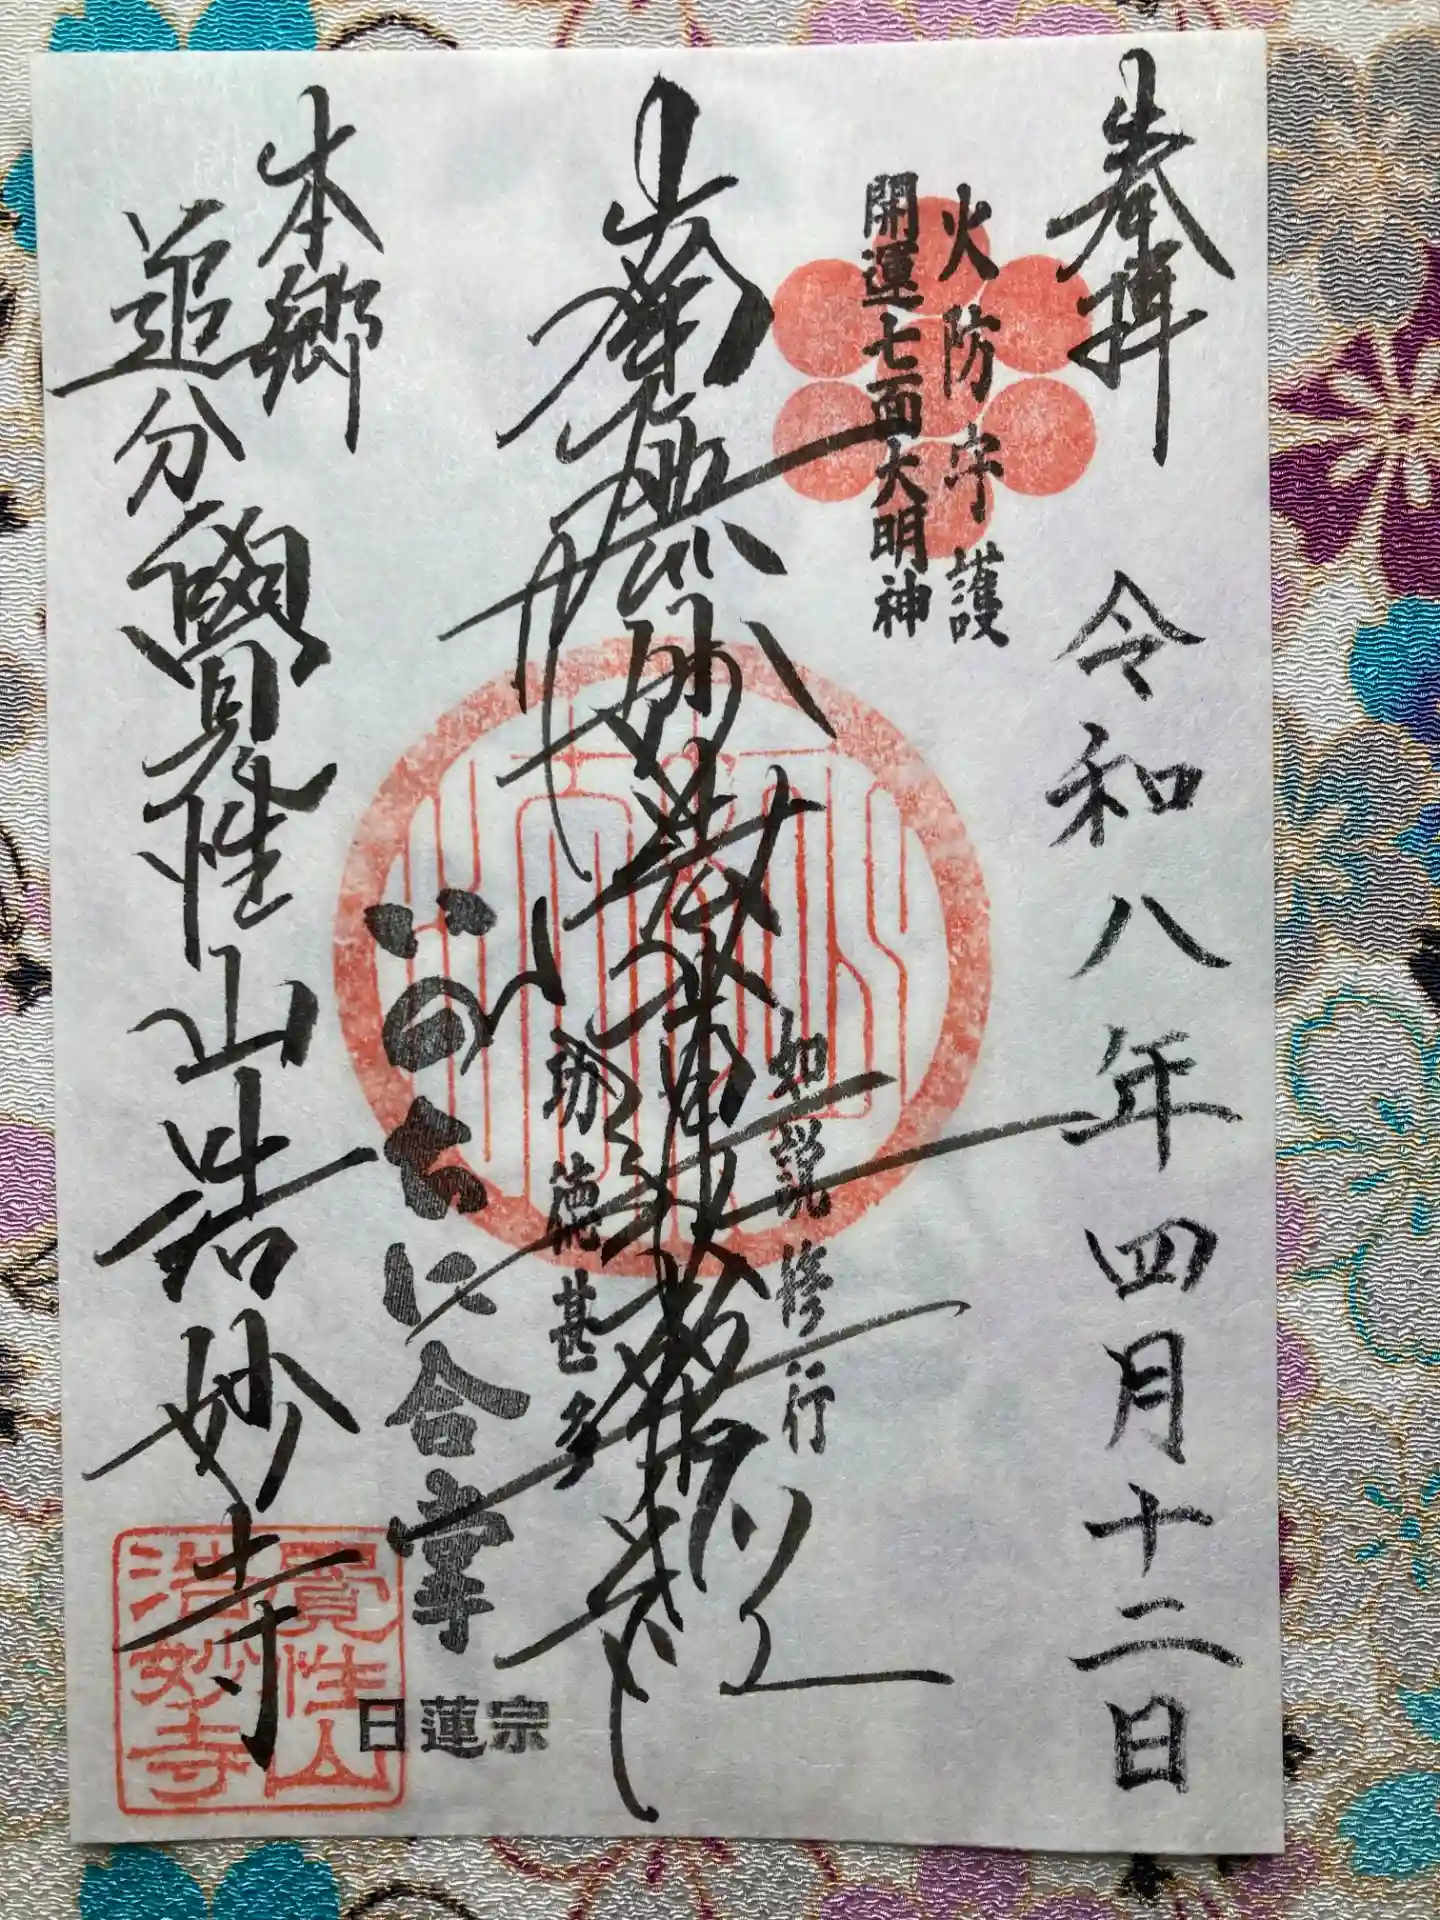 奉拝
令和八年四月十二日
火防守護
開運七面大明神
南無妙法蓮華経
如説修行
功徳甚多
いのちに合掌
日蓮宗
本郷
追分
覺性山浩妙寺
覺性山
浩妙寺